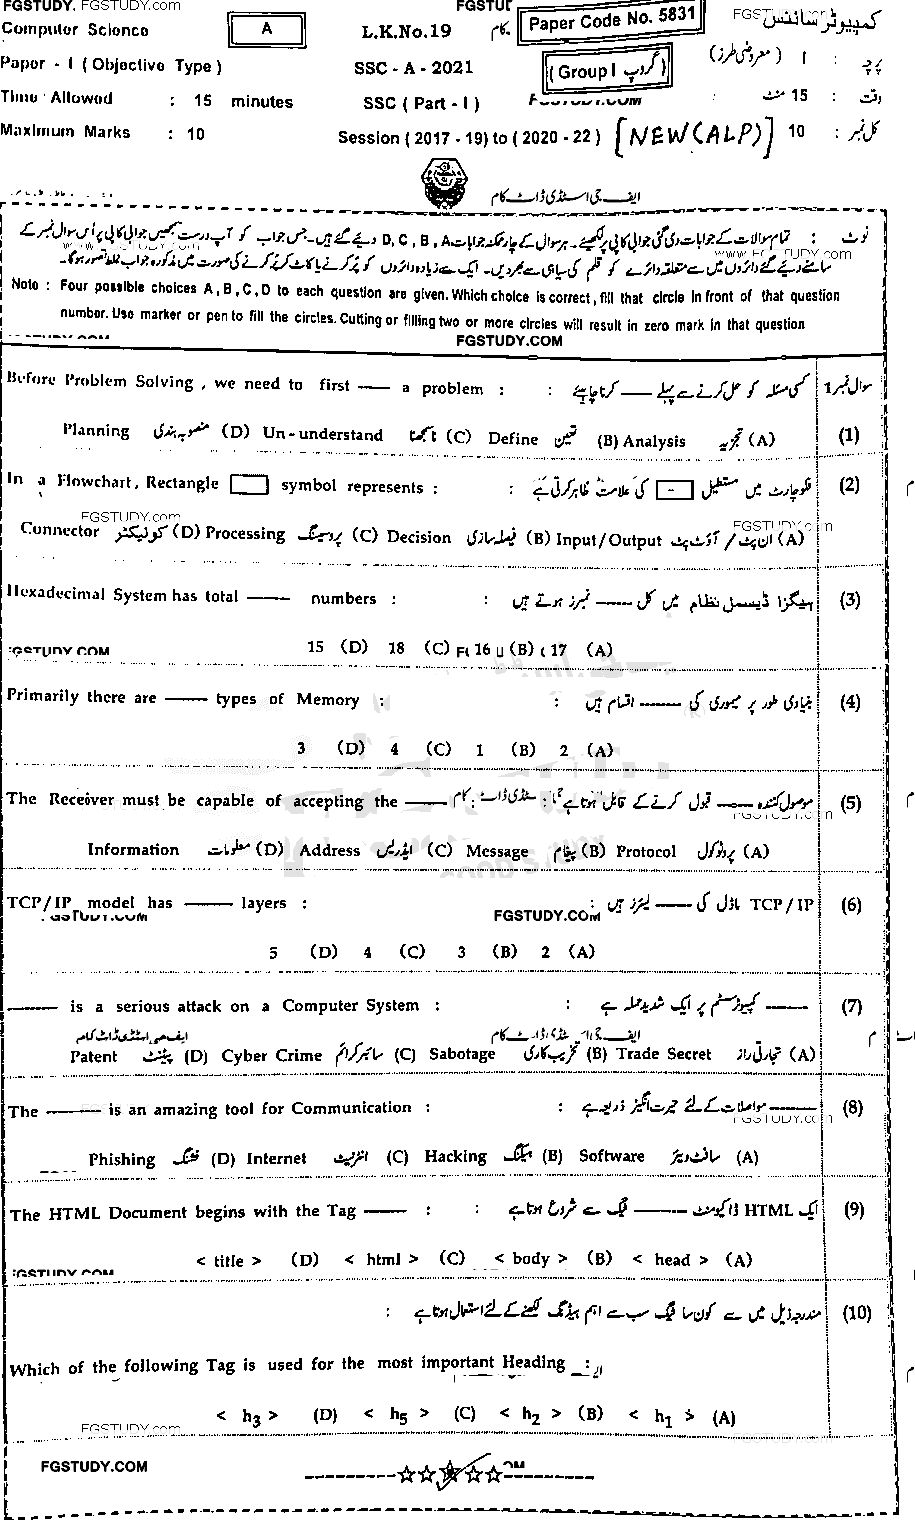 FGSTUDY.COM
Computer Science A L.K.No.19 Paper Code No. 5831 کمپیوٹر سائنس
Paper - I ( Objective Type ) SSC - A - 2021 (Group I گروپ) پرچہ : I (معروضی طرز)
Time Allowed : 15 minutes SSC ( Part - I ) FGSTUDY.COM وقت : 15 منٹ
Maximum Marks : 10 Session ( 2017 - 19) to ( 2020 - 22 ) [NEW(ALP)] کل نمبر : 10
ایف جی اسٹڈی ڈاٹ کام
نوٹ : تمام سوالات کے جوابات دی گئی جوابی کاپی پر لکھیئے۔ ہر سوال کے چار ممکنہ جوابات D, C, B, A دیے گئے ہیں۔ جس جواب کو آپ درست سمجھیں جوابی کاپی پر اُس سوال نمبر کے
سامنے دیے گئے دائروں میں سے متعلقہ دائرے کو قلم کی سیاہی سے بھر دیں۔ ایک سے زیادہ دائروں کو پُر کرنے یا کاٹ کر پُر کرنے کی صورت میں مذکورہ جواب غلط تصور ہوگا۔
Note : Four possible choices A , B , C , D to each question are given. Which choice is correct , fill that circle in front of that question
number. Use marker or pen to fill the circles. Cutting or filling two or more circles will result in zero mark in that question
FGSTUDY.COM
Before Problem Solving , we need to first —— a problem : : کسی مسئلہ کو حل کرنے سے پہلے —— کرنا چاہیئے سوال نمبر 1
Planning منصوبہ بندی (D) Un-understand ناسمجھنا (C) Define تعین (B) Analysis تجزیہ (A) (1)
In a Flowchart , Rectangle symbol represents : : فلوچارٹ میں مستطیل کی علامت ظاہر کرتی ہے (2)
FGSTUDY.com FGSTUDY.com
Connector کونیکٹر (D) Processing پروسیسنگ (C) Decision فیصلہ سازی (B) Input/Output ان پٹ / آؤٹ پٹ (A)
Hexadecimal System has total —— numbers : : ہیگزا ڈیسمل نظام میں کل —— نمبرز ہوتے ہیں (3)
15 (D) 18 (C) 16 (B) 17 (A)
Primarily there are —— types of Memory : : بنیادی طور پر میموری کی —— اقسام ہیں (4)
3 (D) 4 (C) 1 (B) 2 (A)
The Receiver must be capable of accepting the —— : موصول کنندہ —— قبول کرنے کے قابل ہوتا ہے (5)
Information معلومات (D) Address ایڈریس (C) Message پیغام (B) Protocol پروٹوکول (A)
TCP/IP model has —— layers : : TCP/IP ماڈل کی —— لیئرز ہیں (6)
FGSTUDY.COM
5 (D) 4 (C) 3 (B) 2 (A)
—— is a serious attack on a Computer System : : —— کمپیوٹر سسٹم پر ایک شدید حملہ ہے (7)
ایف جی اسٹڈی ڈاٹ کام
Patent پیٹنٹ (D) Cyber Crime سائبر کرائم (C) Sabotage تخریب کاری (B) Trade Secret تجارتی راز (A)
The —— is an amazing tool for Communication : : —— مواصلات کے لئے حیرت انگیز ذریعہ ہے (8)
FGSTUDY.com
Phishing فشنگ (D) Internet انٹرنیٹ (C) Hacking ہیکنگ (B) Software سافٹ ویئر (A)
The HTML Document begins with the Tag —— : : ایک HTML ڈاکومنٹ —— ٹیگ سے شروع ہوتا ہے (9)
< title > (D) < html > (C) < body > (B) < head > (A)
مندرجہ ذیل میں سے کون سا ٹیگ سب سے اہم ہیڈنگ لکھنے کے لئے استعمال ہوتا ہے : (10)
Which of the following Tag is used for the most important Heading :
< h3 > (D) < h5 > (C) < h2 > (B) < h1 > (A)
FGSTUDY.com
FGSTUDY.COM